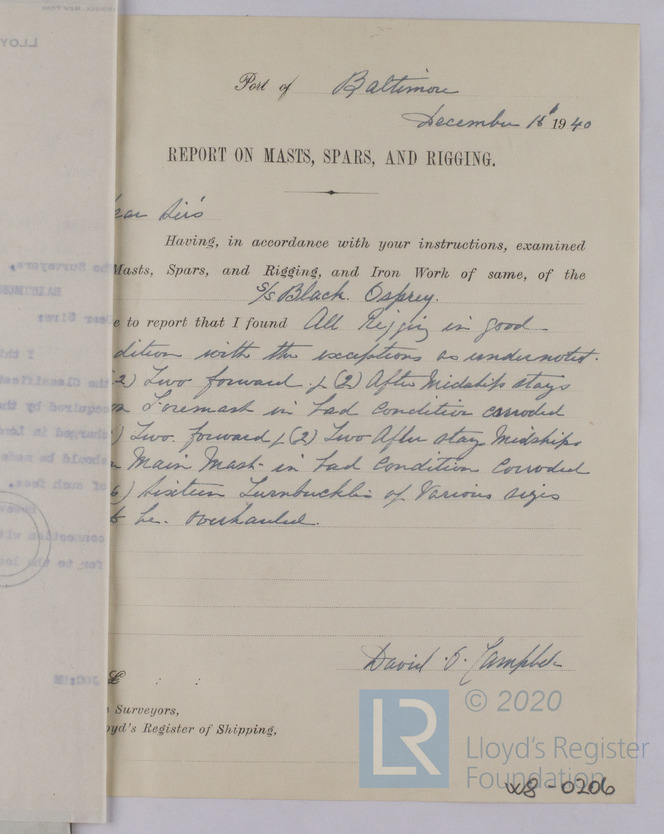 Port of Baltimore
December 18 1940
REPORT ON MASTS, SPARS, AND RIGGING.
ear Sirs
Having, in accordance with your instructions, examined
Masts, Spars, and Rigging, and Iron Work of same, of the
S/S Black Osprey.
e to report that I found All Rigging in good
dition with the exceptions as undernoted.
2) Two forward & (2) After Midships stays
on Foremast in bad condition corroded
) Two forward & (2) Two After stay Midships
Main Mast in bad Condition Corroded
6) Sixteen Turnbuckles of Various sizes
to be overhauled.
David S. Campbell
£ : :
Surveyors,
oyd's Register of Shipping,
© 2020
LR
Lloyd's Register
Foundation
W8-0206